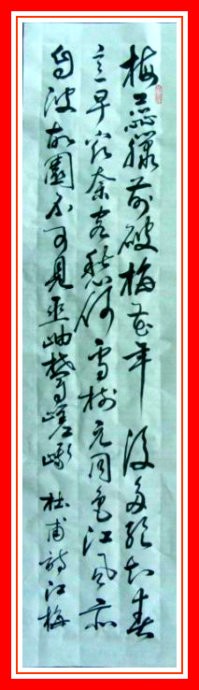 梅蕊臘前破梅花年後多絕知春
意早最奈客愁何雪樹元同色江風亦
自波故園不可見巫岫鬱嵯峨 杜甫詩江梅